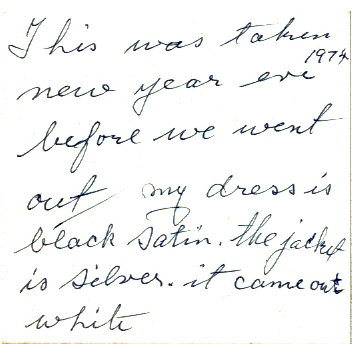 This was taken
1974
new year eve
before we went
out my dress is
black satin. the jacket
is silver. it came out
white